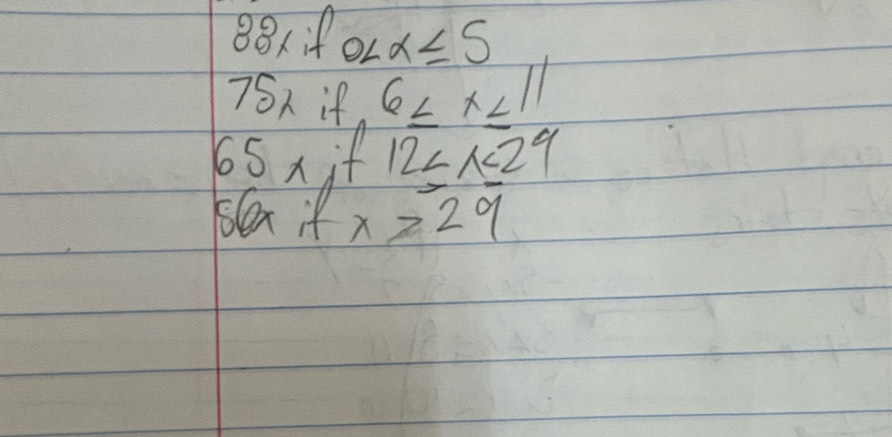 88x if 0< x ≤ 5
75x if 6 ≤ x ≤ 11
65 x if 12 ≤ x ≤ 29
56x if x > 29